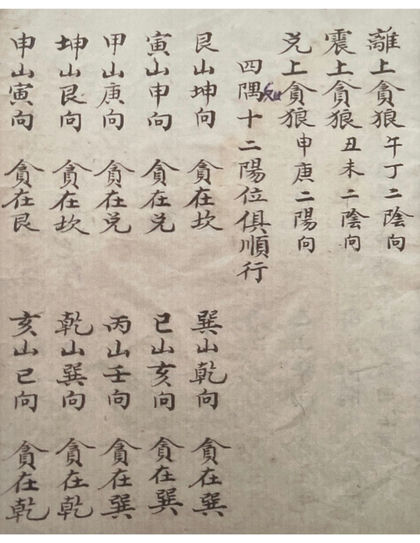 離上貪狼午丁二陰向
震上貪狼丑未二陰向
兌上貪狼申庚二陽向
四隅十二陽位俱順行
艮山坤向 貪在坎 巽山乾向 貪在巽
寅山申向 貪在兌 巳山亥向 貪在巽
甲山庚向 貪在兌 丙山壬向 貪在巽
坤山艮向 貪在坎 乾山巽向 貪在乾
申山寅向 貪在艮 亥山巳向 貪在乾